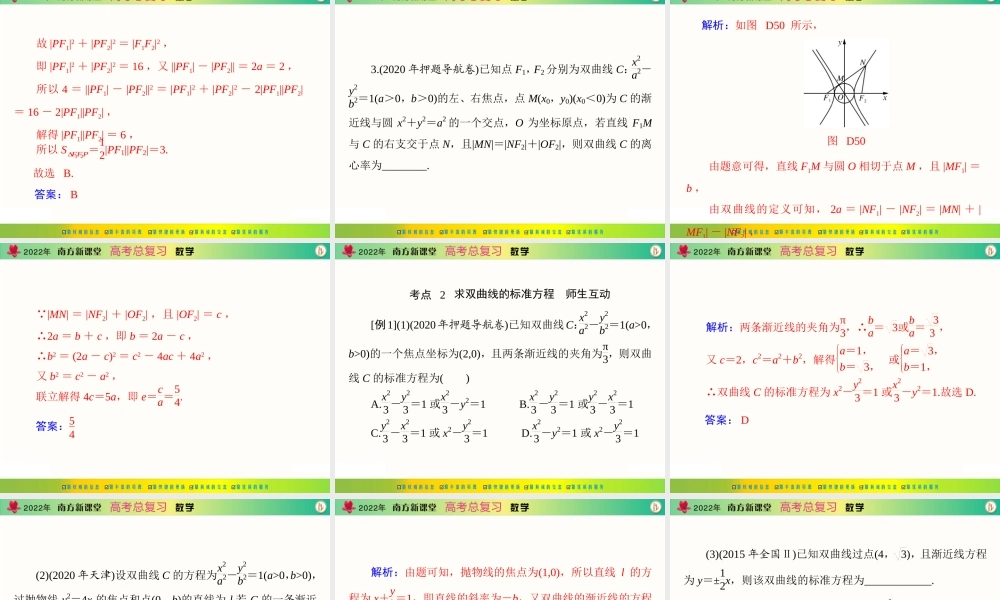 故 |PF₁|² + |PF₂|² = |F₁F₂|² ,
即 |PF₁|² + |PF₂|² = 16 , 又 ||PF₁| − |PF₂|| = 2a = 2 ,
所以 4 = ||PF₁| − |PF₂||² = |PF₁|² + |PF₂|² − 2|PF₁||PF₂|
= 16 − 2|PF₁||PF₂| ,
解得 |PF₁||PF₂| = 6 ,
所以 S△F₁F₂P = 1/2|PF₁||PF₂|=3.
故选 B.
答案： B
3.(2020 年押题导航卷)已知点 F₁，F₂ 分别为双曲线 C：x²/a²−
y²/b²=1(a＞0，b＞0)的左、右焦点，点 M(x₀，y₀)(x₀＜0)为 C 的渐
近线与圆 x²+y²=a² 的一个交点，O 为坐标原点，若直线 F₁M
与 C 的右支交于点 N，且|MN|=|NF₂|+|OF₂|，则双曲线 C 的离
心率为________.
解析：如图 D50 所示，
y
M
N
F₁
O
F₂
x
图 D50
由题意可得，直线 F₁M 与圆 O 相切于点 M，且 |MF₁| =
b ,
由双曲线的定义可知， 2a = |NF₁| − |NF₂| = |MN| + |
MF₁| − |NF₂| ,
2022年 南方新课堂 高考总复习 数学
∵|MN| = |NF₂| + |OF₂| , 且 |OF₂| = c ,
∴2a = b + c , 即 b = 2a − c ,
∴b² = (2a − c)² = c² − 4ac + 4a² ,
又 b² = c² − a² ,
联立解得 4c=5a，即 e=c/a=5/4.
答案：5/4
2022年 南方新课堂 高考总复习 数学
考点 2 求双曲线的标准方程 师生互动
[例1](1)(2020 年押题导航卷)已知双曲线 C：x²/a²−y²/b²=1(a>0，
b>0)的一个焦点坐标为(2,0)，且两条渐近线的夹角为π/3，则双曲
线 C 的标准方程为( )
A.x²/3−y²/3=1 或x²/3−y²=1 B.x²/3−y²/3=1 或y²/3−x²/3=1
C.y²/3−x²/3=1 或 x²−y²/3=1 D.x²/3−y²=1 或 x²−y²/3=1
2022年 南方新课堂 高考总复习 数学
解析：两条渐近线的夹角为π/3，∴b/a= 3或b/a= 3/3，
又 c=2，c²=a²+b²，解得{a=1，b= 3， 或{a= 3，b=1，
∴双曲线 C 的标准方程为 x²−y²/3=1 或x²/3−y²=1.故选 D.
答案： D
2022年 南方新课堂 高考总复习 数学
(2)(2020 年天津)设双曲线 C 的方程为x²/a²−y²/b²=1(a>0,b>0)，
过抛物线 y²=4x 的焦点和点(0，b)的直线为 l.若 C 的一条渐近
2022年 南方新课堂 高考总复习 数学
解析：由题可知，抛物线的焦点为(1,0)，所以直线 l 的方
程为 x+y/b=1，即直线的斜率为−b，又双曲线的渐近线的方程
2022年 南方新课堂 高考总复习 数学
(3)(2015 年全国Ⅱ)已知双曲线过点(4， 3)，且渐近线方程
为 y=±1/2x，则该双曲线的标准方程为____________.